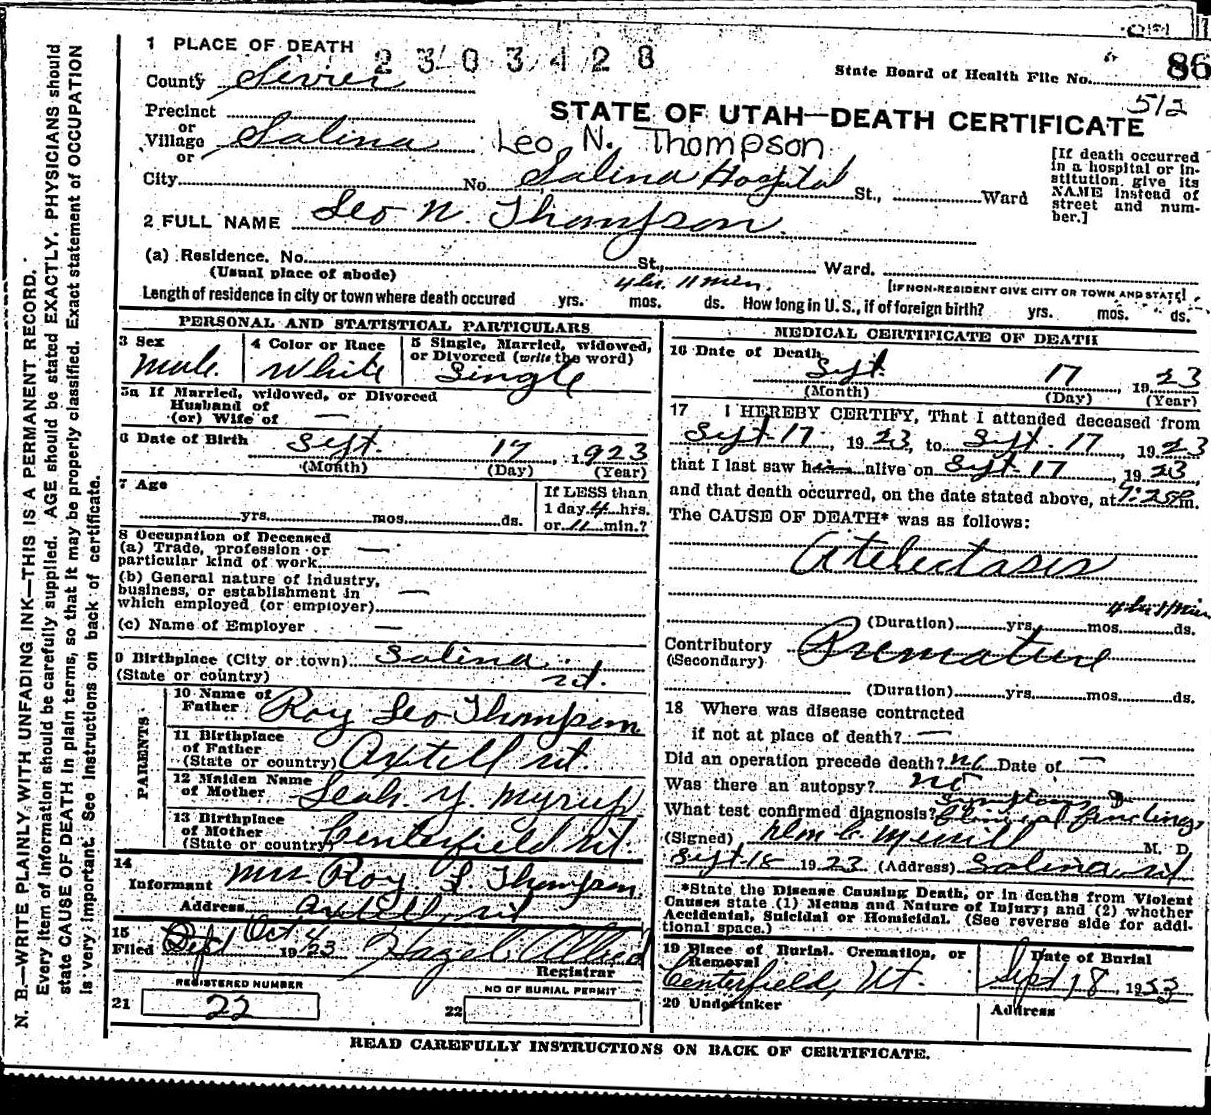 1 PLACE OF DEATH 2303428
County Sevier
State Board of Health File No. 86
512
Precinct
or
Village Salina
or
STATE OF UTAH—DEATH CERTIFICATE
Leo N. Thompson
City No. Salina Hospital St., Ward
[If death occurred
in a hospital or in-
stitution give its
NAME instead of
street and num-
ber.]
2 FULL NAME Leo N. Thompson
(a) Residence. No. St., Ward.
(Usual place of abode) [IF NON-RESIDENT GIVE CITY OR TOWN AND STATE]
4 hr. 11 min.
Length of residence in city or town where death occured yrs. mos. ds. How long in U. S., if of foreign birth? yrs. mos. ds.
PERSONAL AND STATISTICAL PARTICULARS
3 Sex
Male
4 Color or Race
White
5 Single, Married, widowed,
or Divorced (write the word)
Single
5a If Married, widowed, or Divorced
Husband of
(or) Wife of —
6 Date of Birth Sept. 17, 1923
(Month) (Day) (Year)
7 Age
yrs. mos. ds.
If LESS than
1 day 4 hrs.
or 11 min.?
8 Occupation of Deceased
(a) Trade, profession or
particular kind of work —
(b) General nature of industry,
business, or establishment in
which employed (or employer) —
(c) Name of Employer —
9 Birthplace (City or town) Salina
(State or country) Ut.
PARENTS
10 Name of
Father Roy Leo Thompson
11 Birthplace
of Father
(State or country) Axtell Ut
12 Maiden Name
of Mother Leah Y. Myrup
13 Birthplace
of Mother
(State or country) Centerfield Ut.
14
Informant Mrs Roy L. Thompson
Address Axtell, Ut
15
Filed Sept Oct 4 1923 Hazel Allred
Registrar
REGISTERED NUMBER
21 22
NO OF BURIAL PERMIT
22
MEDICAL CERTIFICATE OF DEATH
16 Date of Death
Sept. 17, 1923
(Month) (Day) (Year)
17 I HEREBY CERTIFY, That I attended deceased from
Sept 17, 1923, to Sept. 17, 1923
that I last saw him alive on Sept 17, 1923,
and that death occurred, on the date stated above, at 7:25P m.
The CAUSE OF DEATH* was as follows:
Atelectasis
4 hr 11 min
(Duration) yrs. mos. ds.
Contributory Premature
(Secondary)
(Duration) yrs. mos. ds.
18 Where was disease contracted
if not at place of death? —
Did an operation precede death? no Date of —
Was there an autopsy? no
Symptoms &
What test confirmed diagnosis? Clinical findings
(Signed) Merrill M. D.
Sept 18 1923 (Address) Salina, Ut
*State the Disease Causing Death, or in deaths from Violent
Causes state (1) Means and Nature of Injury; and (2) whether
Accidental, Suicidal or Homicidal. (See reverse side for addi-
tional space.)
19 Place of Burial, Cremation, or
Removal
Centerfield, Ut.
Date of Burial
Sept 18 1923
20 Undertaker
Address
READ CAREFULLY INSTRUCTIONS ON BACK OF CERTIFICATE.
N. B.—WRITE PLAINLY, WITH UNFADING INK—THIS IS A PERMANENT RECORD.
Every item of information should be carefully supplied. AGE should be stated EXACTLY. PHYSICIANS should
state CAUSE OF DEATH in plain terms, so that it may be properly classified. Exact statement of OCCUPATION
is very important. See instructions on back of certificate.